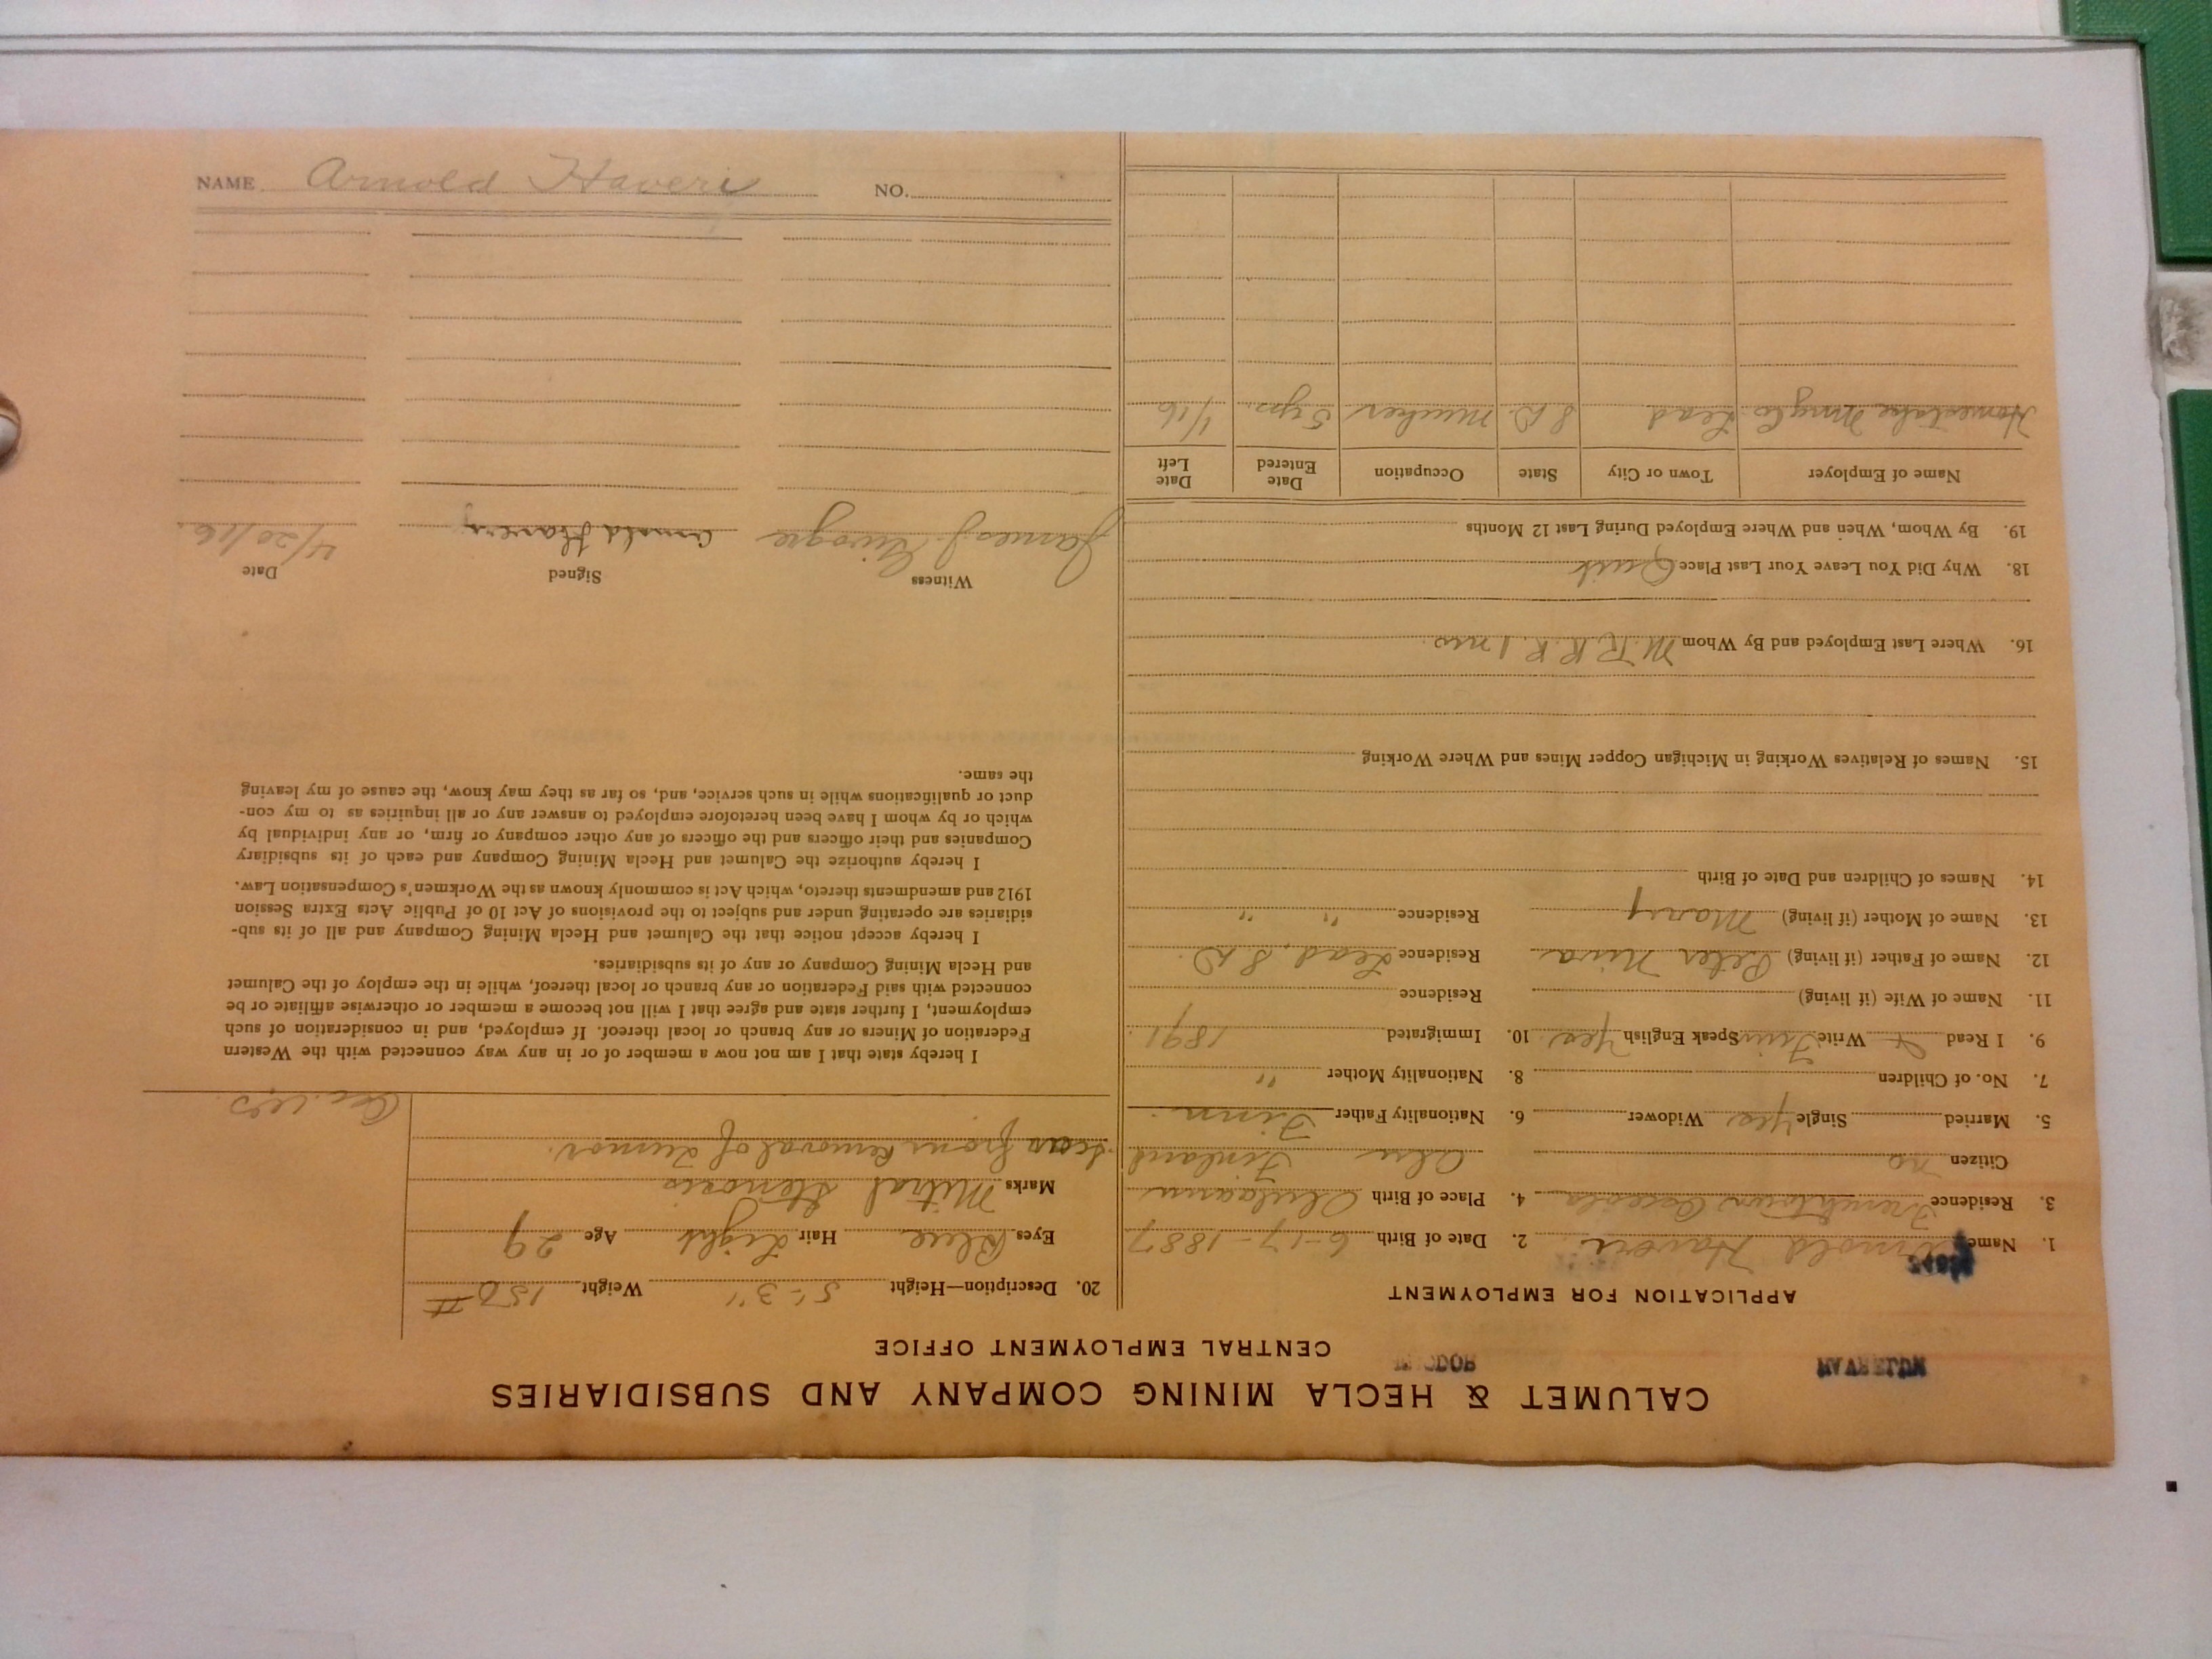 CALUMET & HECLA MINING COMPANY AND SUBSIDIARIES
CENTRAL EMPLOYMENT OFFICE
APPLICATION FOR EMPLOYMENT
1. Name Arnold Haveri 2. Date of Birth 6-17-1887
3. Residence Frenchtown Osceola 4. Place of Birth
Citizen no Finland
5. Married Single Yes Widower 6. Nationality Father Finn.
7. No. of Children 8. Nationality Mother "
9. I Read Write Finn Speak English Yes 10. Immigrated 1891
11. Name of Wife (if living) Residence
12. Name of Father (if living) Peter Niva Residence Lead, S.D.
13. Name of Mother (if living) Mary Residence " "
14. Names of Children and Date of Birth
15. Names of Relatives Working in Michigan Copper Mines and Where Working
16. Where Last Employed and By Whom
18. Why Did You Leave Your Last Place Quit
19. By Whom, When and Where Employed During Last 12 Months
Name of Employer Town or City State Occupation Date Entered Date Left
Homestake Mng Co. Lead S.D. Mucker 5 yrs. 1/16
20. Description—Height 5'-3" Weight 150 #
Eyes Blue Hair Light Age 29
Marks Mitral Stenosis
Scar from Removal of Tumor.
I hereby state that I am not now a member of or in any way connected with the Western
Federation of Miners or any branch or local thereof. If employed, and in consideration of such
employment, I further state and agree that I will not become a member or otherwise affiliate or be
connected with said Federation or any branch or local thereof, while in the employ of the Calumet
and Hecla Mining Company or any of its subsidiaries.
I hereby accept notice that the Calumet and Hecla Mining Company and all of its sub-
sidiaries are operating under and subject to the provisions of Act 10 of Public Acts Extra Session
1912 and amendments thereto, which Act is commonly known as the Workmen's Compensation Law.
I hereby authorize the Calumet and Hecla Mining Company and each of its subsidiary
Companies and their officers and the officers of any other company or firm, or any individual by
which or by whom I have been heretofore employed to answer any or all inquiries as to my con-
duct or qualifications while in such service, and, so far as they may know, the cause of my leaving
the same.
Witness Signed Date
James J. Arnold Haveri 4/20/16.
NAME Arnold Haveri NO.